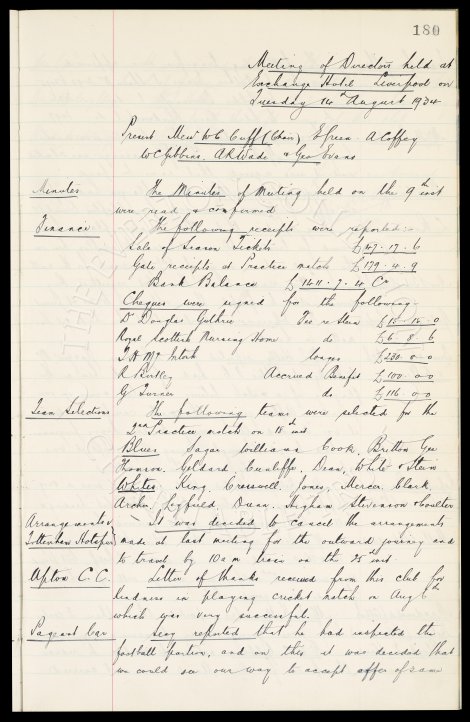 180
Meeting of Directors held at
Exchange Hotel Liverpool on
Tuesday 14th August 1934
Present Messrs W C Cuff (Chair), E Green. A Coffey
W C Gibbins. A H Wade & Geo Evans
Minutes The Minutes of Meeting held on the 9th inst
were read & confirmed
Finance The following receipts were reported:-
Sale of Season Tickets £47.17.6
Gate receipts at Practice match £179.4.9
Bank Balance £1411.7.4 Cr
Cheques were signed for the following.
Dr Douglas Guthrie Fee re Stein £15.15.0
Royal Scottish Nursing Home do £6 8 6
T H McIntosh wages £230.0.0
R Birtley Accrued Benefit £100.0.0
G Turner do £116.0.0
Team Selections The following teams were selected for the
2nd Practice match on 18th inst
Blues. Sagar. Williams Cook. Britton Gee
Thomson, Geldard. Cunliffe. Dean, White & Stein
Whites King. Cresswell Jones, Mercer. Clark,
Archer. Leyfield, Dunn. Higham Stevenson & Coulter
Arrangements v Tottenham Hotspur It was decided to cancel the arrangements
made at last meeting for the outward journey and
to travel by 10am train on the 25th inst
Upton C.C. Letter of thanks received from this club for
kindness in playing cricket match on Aug 6th
which was very successful.
Pageant Car Secy reported that he had inspected the
football portion, and on this it was decided that
we could see our way to accept offer of same